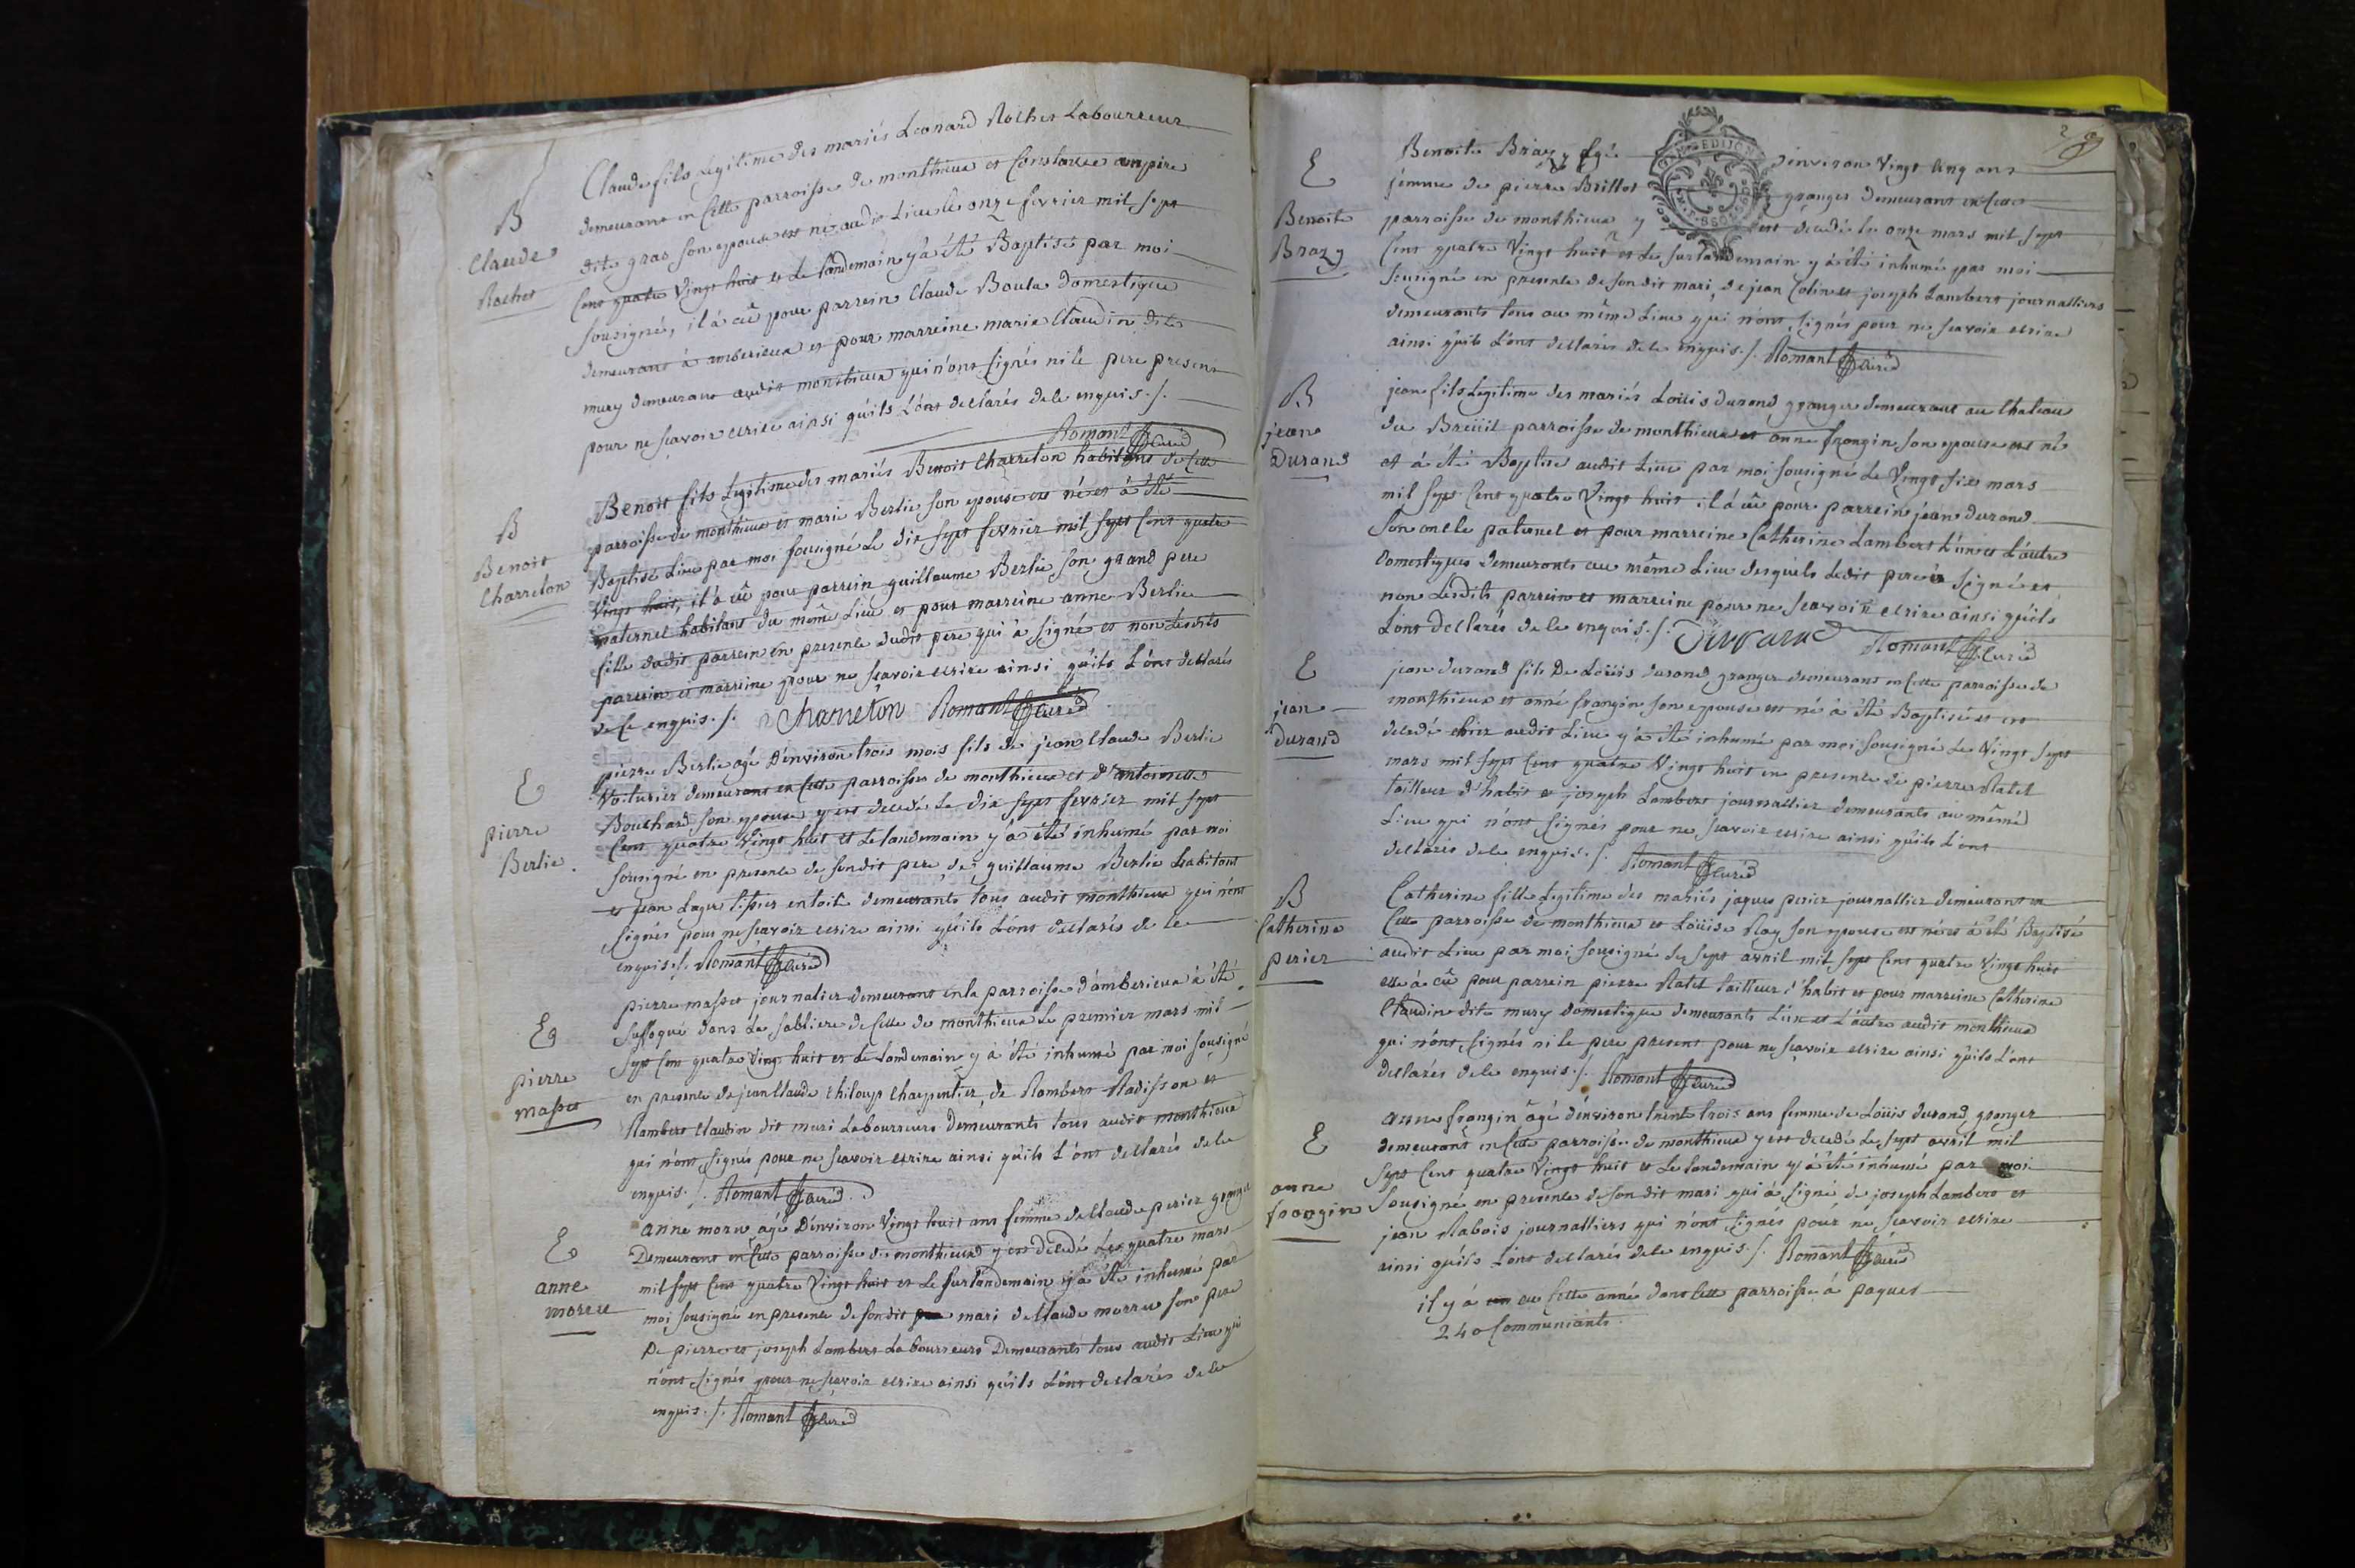 Claude fils Legitime des mariés Leonard Rochet Labourreur
demeurant en cette parroisse de monthieux et Constance ampire
dite gras son epouse est né audit Lieu le onze fevrier mil sept
Cent quatre Vingt huit et Le landemain y à été Baptisé par moi
sousigné, il à eû pour parrein Claude Boula Domestique
demeurant à amberieux et pour marreine marie Claudin dite
mury demeurant audit monthieux qui n'ont signés ni le pere present
pour ne scavoir ecrire ainsi qu'ils L'ont declarés de ce enquis ./.
Romant Curé
B
Claude
Rochet
Benoit fils Legitime des mariés Benoit Charreton habitant de Cette
parroisse de monthieux et marie Berlie son epouse est né et à été
Baptisé Lieu par moi sousigné Le dix sept fevrier mil sept Cent quatre
Vingt huit, il à eû pour parrein guillaume Berlie son grand pere
maternel habitant du même Lieu et pour marreine anne Berlie
fille dudit parrein en presence dudit pere qui à signé et non Lesdits
parrein et marreine pour ne scavoir ecrire ainsi qu'ils L'ont declarés
de ce enquis ./. Charreton Romant Curé
B
Benoit
Charreton
pierre Berlie agé D'environ trois mois fils de jean Claude Berlie
Voiturier demeurant en Cette parroisse de monthieux et d'antoinette
Bouchard son epouse y est decedé Le dix sept fevrier mil sept
Cent quatre Vingt huit et Le landemain y à été inhumé par moi
sousigné en presence de sondit pere, de guillaume Berlie habitant
et jean Lager tissier en toile demeurants tous audit monthieux qui n'ont
signés pour ne scavoir ecrire ainsi qu'ils L'ont declarés de ce
enquis ./. Romant Curé
E
pierre
Berlie
pierre masset journalier demeurant en la parroisse d'amberieux à été
suffoqué dans La sabliere de Cette de monthieux Le premier mars mil
sept Cent quatre Vingt huit et Le landemain y à été inhumé par moi sousigné
en presence de jean Claude Chiloup Charpentier, de Rambert Radisson et
Rambert Claudin dit muri Labourreurs Demeurants tous audit monthieux
qui n'ont signés pour ne scavoir ecrire ainsi qu'ils L'ont declarés de ce
enquis ./. Romant Curé
E
pierre
masset
anne morru agé D'environ Vingt huit ans femme de Claude perier granger
Demeurant en Cette parroisse de monthieux y est decedé Le quatre mars
mil sept Cent quatre Vingt huit et Le surlandemain y à été inhumé par
moi sousigné en presence de sondit mari de Claude morru son pere
De pierre et joseph Lambert Labourreurs Demeurants tous audit Lieu qui
n'ont signés pour ne scavoir ecrire ainsi qu'ils L'ont declarés de ce
enquis ./. Romant Curé
E
anne
morru
Benoite Brazy agé d'environ Vingt Cinq ans
femme de pierre Brillot granger demeurant en cette
parroisse de monthieux y est decedé le onze mars mil sept
Cent quatre Vingt huit et Le surlandemain y à été inhumé par moi
sousigné en presence de sondit mari, de jean Colin et joseph Lambert journalliers
demeurants tous au même Lieu qui n'ont signés pour ne scavoir ecrire
ainsi qu'ils L'ont declarés de ce enquis ./. Romant Curé
E
Benoite
Brazy
jean fils Legitime des mariés Loüis durand granger demeurant au Chateau
du Breüil parroisse de monthieux et anne frangin son epouse est né
et à été Baptisé audit Lieu par moi sousigné Le Vingt six mars
mil sept Cent quatre Vingt huit il à eû pour parrein jean durand
son oncle paternel et pour marreine Catherine Lambert L'un et L'autre
Domestiques demeurants au même Lieu desquels Ledit pere à signé et
non Lesdits parrein et marreine pour ne scavoir ecrire ainsi qu'ils
L'ont declarés de ce enquis ./. Romant Curé
B
jean
Durand
jean durand fils De Loüis durand granger demeurant en Cette parroisse de
monthieux et anne frangin son epouse est né à été Baptisé et est
decedé hier audit Lieu y à été inhumé par moi sousigné Le Vingt sept
mars mil sept Cent quatre Vingt huit en presence de pierre Ratel
tailleur d'habit et joseph Lambert journallier demeurants au même
Lieu qui n'ont signés pour ne scavoir ecrire ainsi qu'ils L'ont
declarés de ce enquis ./. Romant Curé
E
jean
Durand
Catherine fille Legitime des mariés jaques perier journallier demeurant en
Cette parroisse de monthieux et Loüise Ray son epouse est né et à été Baptisé
audit Lieu par moi sousigné Le sept avril mil sept Cent quatre Vingt huit
elle à eû pour parrein pierre Ratel tailleur d'habit et pour marreine Catherine
Claudin dite mury domestique demeurants L'un et L'autre audit monthieux
qui n'ont signés ni le pere present pour ne scavoir ecrire ainsi qu'ils L'ont
declarés de ce enquis ./. Romant Curé
B
Catherine
perier
anne frangin âgé d'environ trente trois ans femme de Loüis durand granger
demeurant en Cette parroisse de monthieux y est decedé Le sept avril mil
sept Cent quatre Vingt huit et Le landemain y à été inhumé par moi
sousigné en presence de sondit mari qui à signé, de joseph Lambert et
jean Rabois journalliers qui n'ont signés pour ne scavoir ecrire
ainsi qu'ils L'ont declarés de ce enquis ./. Romant Curé
E
anne
frangin
il y à eu Cette année dans Cette parroisse à paques
240 Communiants.